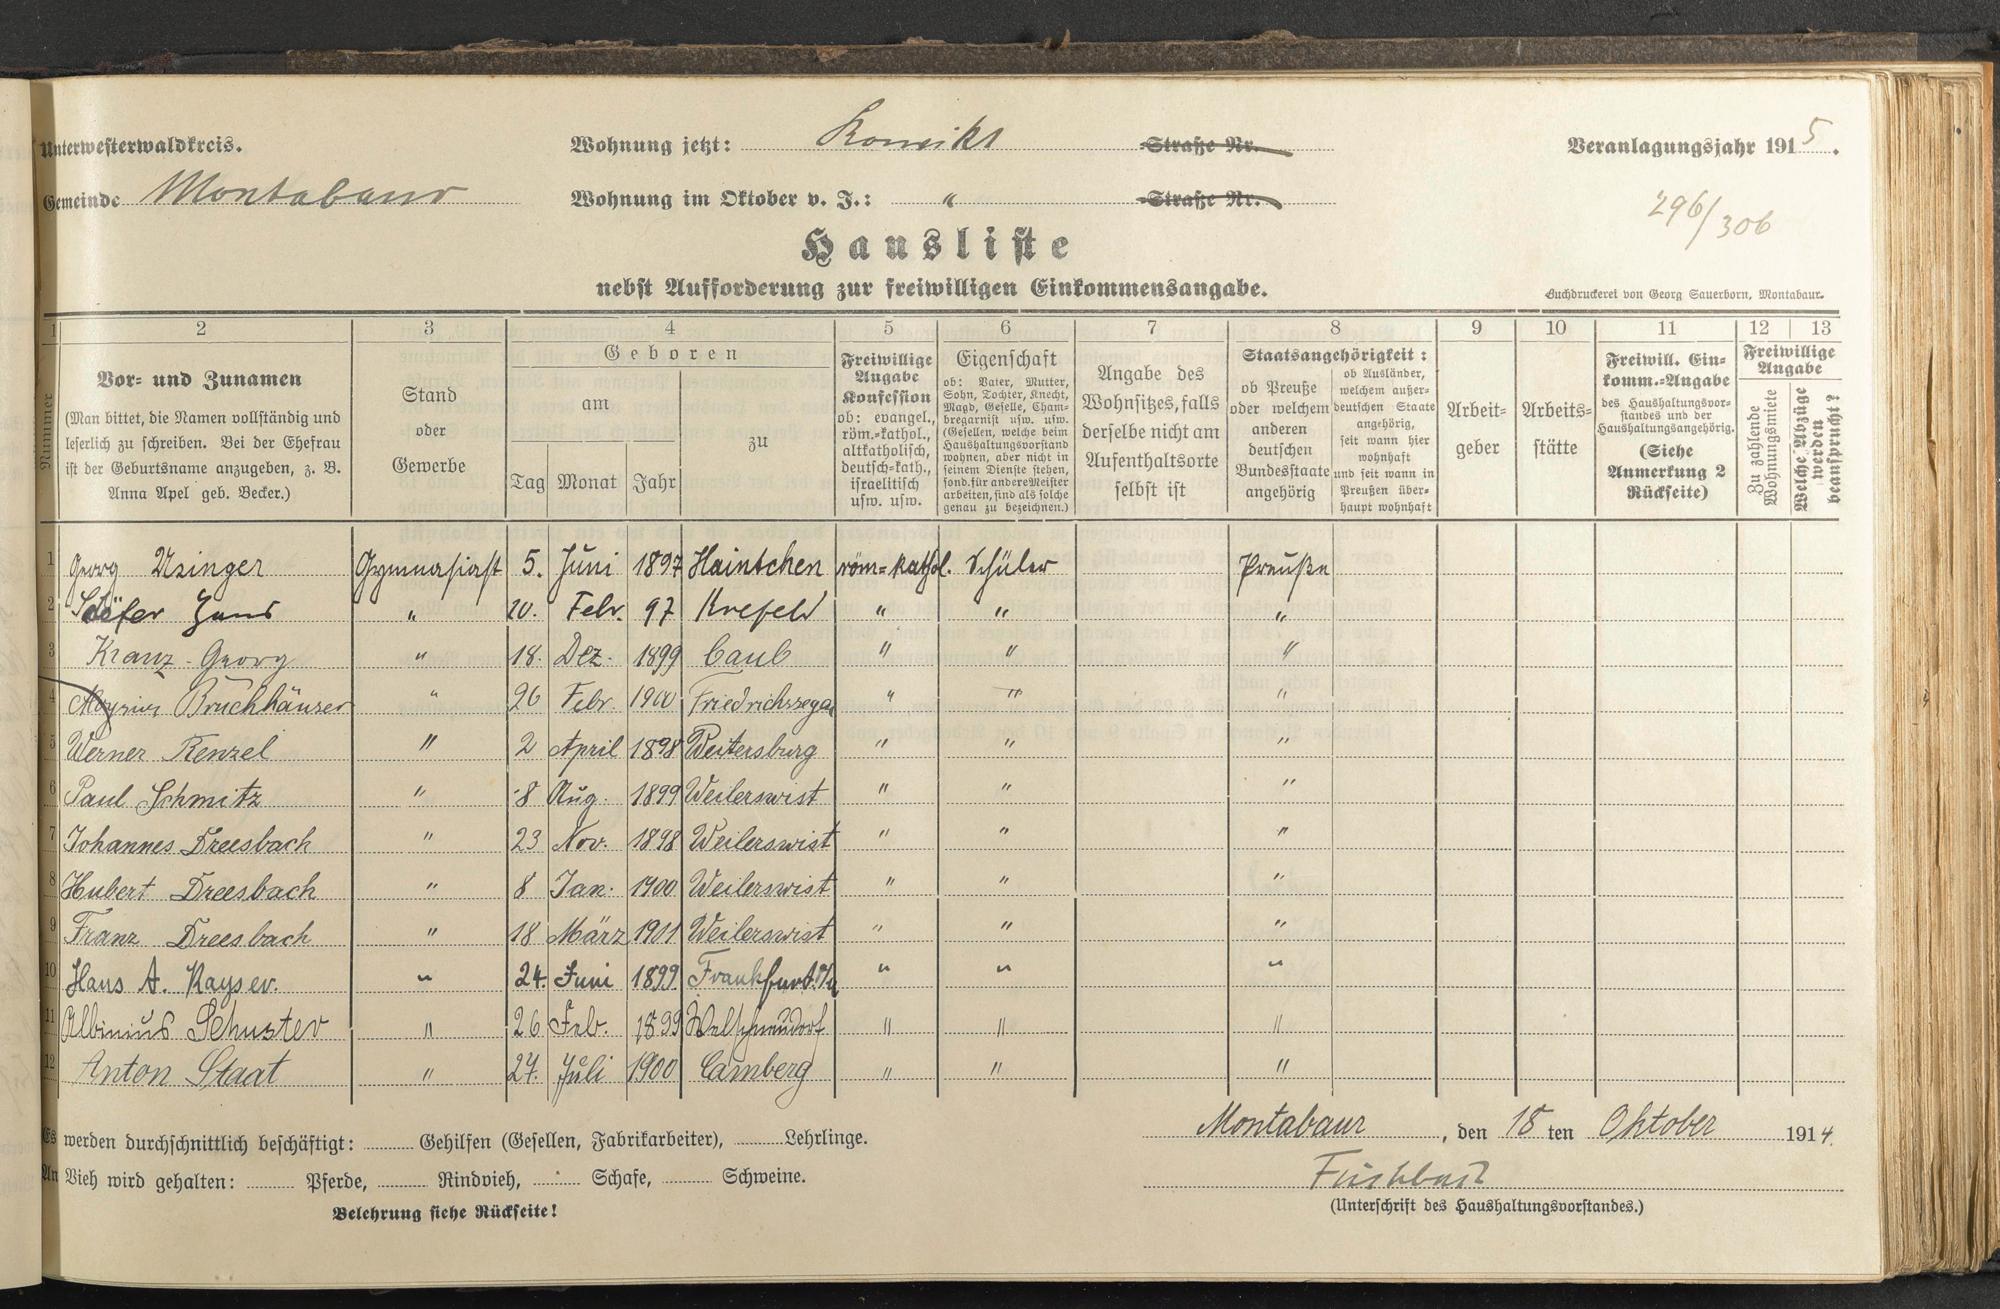 Unterwesterwaldkreis. Wohnung jetzt: Konvikt Straße Nr. Veranlagungsjahr 1915.
Gemeinde Montabaur Wohnung im Oktober v. J.: " Straße Nr.
296/306
Hausliste
nebst Aufforderung zur freiwilligen Einkommensangabe.
Buchdruckerei von Georg Sauerborn, Montabaur.
1 2 3 4 5 6 7 8 9 10 11 12 13
Nummer
Vor- und Zunamen
(Man bittet, die Namen vollständig und
leserlich zu schreiben. Bei der Ehefrau
ist der Geburtsname anzugeben, z. B.
Anna Apel geb. Becker.)
Stand
oder
Gewerbe
Geboren
am
Tag Monat Jahr
zu
Freiwillige
Angabe
Konfession
ob: evangel.,
röm.-kathol.,
altkatholisch,
deutsch-kath.,
israelitisch
usw. usw.
Eigenschaft
ob: Vater, Mutter,
Sohn, Tochter, Knecht,
Magd, Geselle, Cham-
bregarnist usw. usw.
(Gesellen, welche beim
Haushaltungsvorstand
wohnen, aber nicht in
seinem Dienste stehen,
sond. für andere Meister
arbeiten, sind als solche
genau zu bezeichnen.)
Angabe des
Wohnsitzes, falls
derselbe nicht am
Aufenthaltsorte
selbst ist
Staatsangehörigkeit:
ob Preuße
oder welchem
anderen
deutschen
Bundesstaate
angehörig
ob Ausländer,
welchem außer-
deutschen Staate
angehörig,
seit wann hier
wohnhaft
und seit wann in
Preußen über-
haupt wohnhaft
Arbeit-
geber
Arbeits-
stätte
Freiwill. Ein-
komm.-Angabe
des Haushaltungsvor-
standes und der
Haushaltungsangehörig.
(Siehe
Anmerkung 2
Rückseite)
Freiwillige
Angabe
Zu zahlende
Wohnungsmiete
Welche Abzüge
werden
beansprucht?
1 Georg Usinger Gymnasiast 5. Juni 1897 Haintchen röm-kathol. Schüler Preuße
2 Hans " 20. Febr. 97 Krefeld " " "
3 Kranz Georg " 18. Dez. 1899 Caub " " "
4 Aloysius Bruchhäuser " 26 Febr. 1900 " " "
5 Werner Renzel " 2 April 1898 Weitersburg " " "
6 Paul Schmitz " 8 Aug. 1899 Weilerswist " " "
7 Johannes Dreesbach " 23 Nov. 1898 Weilerswist " " "
8 Hubert Dreesbach " 8 Jan. 1900 Weilerswist " " "
9 Franz Dreesbach " 18 März 1901 Weilerswist " " "
10 Hans A. Kayser. " 24. Juni 1899 Frankfurt " " "
11 Albinus Schuster " 26 Feb. 1899 Welschneudorf " " "
12 Anton Staat " 27. Juli 1900 Camberg " " "
Es werden durchschnittlich beschäftigt: Gehilfen (Gesellen, Fabrikarbeiter), Lehrlinge.
An Vieh wird gehalten: Pferde, Rindvieh, Schafe, Schweine.
Belehrung siehe Rückseite!
Montabaur, den 18 ten Oktober 1914.
(Unterschrift des Haushaltungsvorstandes.)